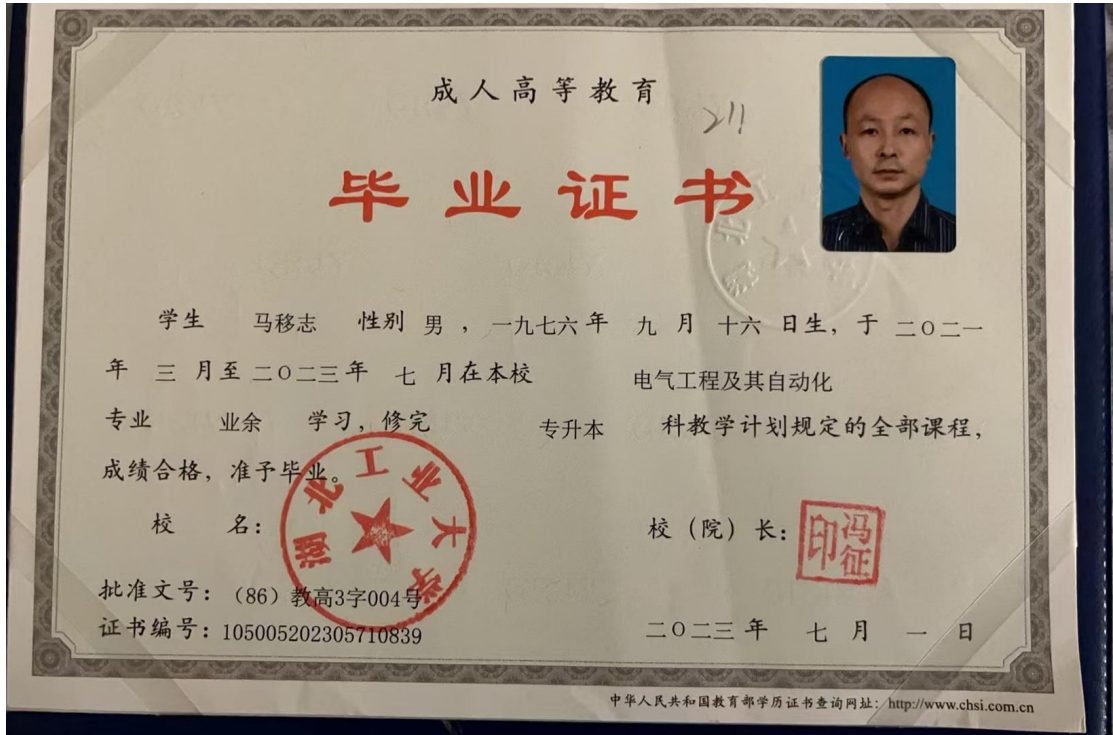 成人高等教育
211
毕业证书
学生 马移志 性别 男，一九七六年 九 月 十六 日生，于 二〇二一
年 三 月至二〇二三年 七 月在本校 电气工程及其自动化
专业 业余 学习，修完 专升本 科教学计划规定的全部课程，
成绩合格，准予毕业。
湖北工业大学
校 名： 校（院）长：
冯征印
批准文号：（86）教高3字004号
证书编号：105005202305710839 二〇二三年 七 月 一 日
中华人民共和国教育部学历证书查询网址：http://www.chsi.com.cn